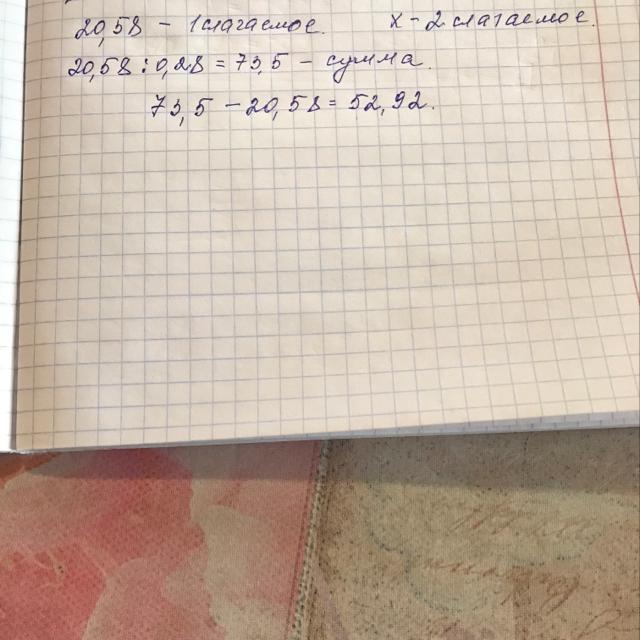 20,58 – 1 слагаемое. х – 2 слагаемое.
20,58 : 0,28 = 73,5 – сумма.
73,5 – 20,58 = 52,92.